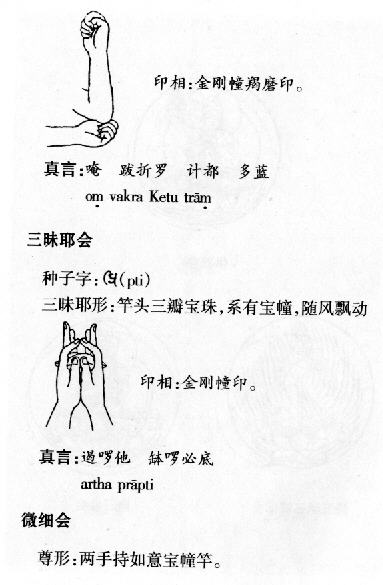 印相:金刚幢羯磨印。
真言:唵 跋折罗 计都 多蓝
oṃ vakra Ketu trāṃ
三昧耶会
种子字:(pti)
三昧耶形:竿头三瓣宝珠,系有宝幢,随风飘动
印相:金刚幢印。
真言:遏啰他 钵啰必底
artha prāpti
微细会
尊形:两手持如意宝幢竿。